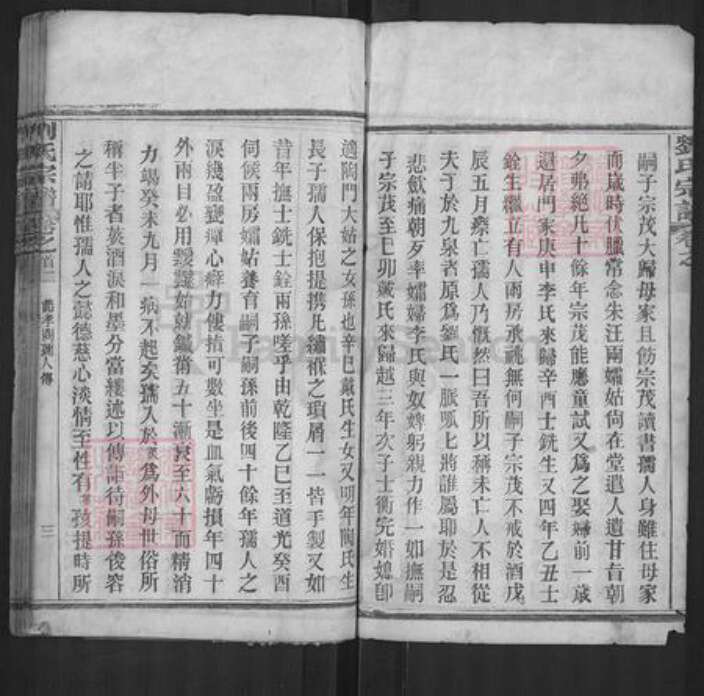 劉氏宗譜 卷之
嗣子宗茂大歸母家且飭宗茂讀書孺人身雖住母家
而歲時伏臘常念朱汪兩孀姑尙在堂遣人遺甘旨朝
夕弗絕凡十餘年宗茂能應童試又爲之娶婦前一歲
還居門家庚申李氏來歸辛酉士銑生又四年乙丑士
銓生繼立有人兩房承祧無何嗣子宗茂不戒於酒戊
辰五月瘵亡孺人乃慨然曰吾所以稱未亡人不相從
夫子於九泉者原爲劉氏一脈呱呱七將誰屬聊於是忍
悲歛痛朝夕率孀婦李氏與奴婢躬親力作一如撫嗣
子宗茂至己卯戴氏來歸越三年次子士衡完婚媳卽
適陶門大姑之女孫也辛巳戴氏生女又明年閔氏生
長子孺人保抱提携凡繈褓之瑣屑一一皆手製又如
昔年撫士銑士銓兩孫嗟乎由乾隆乙巳至道光癸酉
伺侯兩房孀姑養育嗣子嗣孫前後四十餘年孺人之
淚幾盈甕殫心癬力僂指可數坐是血氣虧損年四十
外兩目必用靉靆始就鍼黹五十漸衰至六十而精消
力竭癸未九月一病不起矣孺人於 爲外母世俗所
稱半子者茲酒淚和墨分當縷述以傳詎待嗣孫後容
之請耶惟孺人之懿德慈心淡情至性有 孩提時所
劉氏宗譜 卷之首二 節孝 孺人傳 三